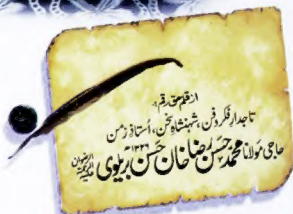 از قلم حق رقم
تاجدارِ فکر و فن، شہنشاہِ سخن، استاذِ زمن
حاجی مولانا محمد حسن رضا خان حسن بریلوی علیہ رحمۃ الرضوان
۱۳۲۶ھ